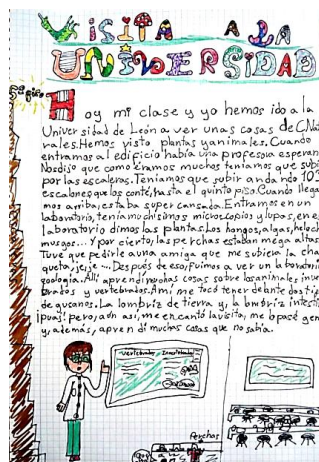 VISITA A LA
UNIVERSIDAD
Hoy mi clase y yo hemos ido a la
Universidad de León a ver unas cosas de C.Natu
rales. Hemos visto plantas y animales. Cuando
entramos al edificio había una profesora esperan
Nos dijo que como éramos muchos teníamos que subi
por las escaleras. Teníamos que subir andando 103
escalones que los conté, hasta el quinto piso. Cuando llega
mos arriba, estaba super cansada. Entramos en un
laboratorio, tenía muchísimos microscopios y lupas, en e
laboratorio dimos las plantas. Los hongos, algas, helech
musgos... Y por cierto, las perchas estaban mega altas
Tuve que pedirle a una amiga que me subiera la cha
queta, jeje... Después de eso, fuimos a ver un laboratorio
zoología. Allí aprendí muchas cosas sobre los animales inve
brados y vertebrados. A mi me tocó tener delante dos ti
de gusanos. La lombriz de tierra y, la lombriz intesti
¡puaj! pero, aún así, me encantó la visita, me lo pasé gen
y, además, aprendí muchas cosas que no sabía.
Vertebrados Invertebrados
Perchas